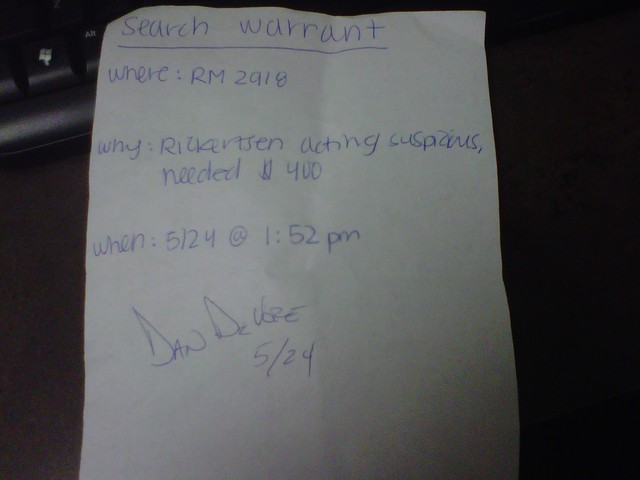 search warrant
where: RM 2918
why: Rickertsen acting suspicious,
needed $ 400
when: 5/24 @ 1:52 pm
DAN DEVORE
5/24
Alt